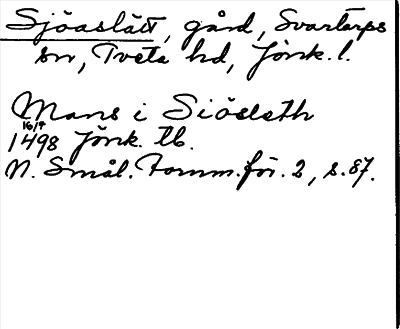 Sjöaslätt, gård, Svartarps
sn, Tveta hd, Jönk. l.
Mans i Siösleth
16/9
1498 Jönk. tb.
N. Smål. Fornm.för. 2, s. 87.